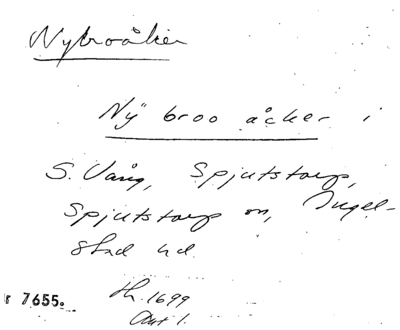 Nybroåker
Nÿ broo åcker i
S. Vång, Spjutstorp,
Spjutstorp sn, Ingel-
stad hd.
r 7655.
th. 1699
Akt 1.